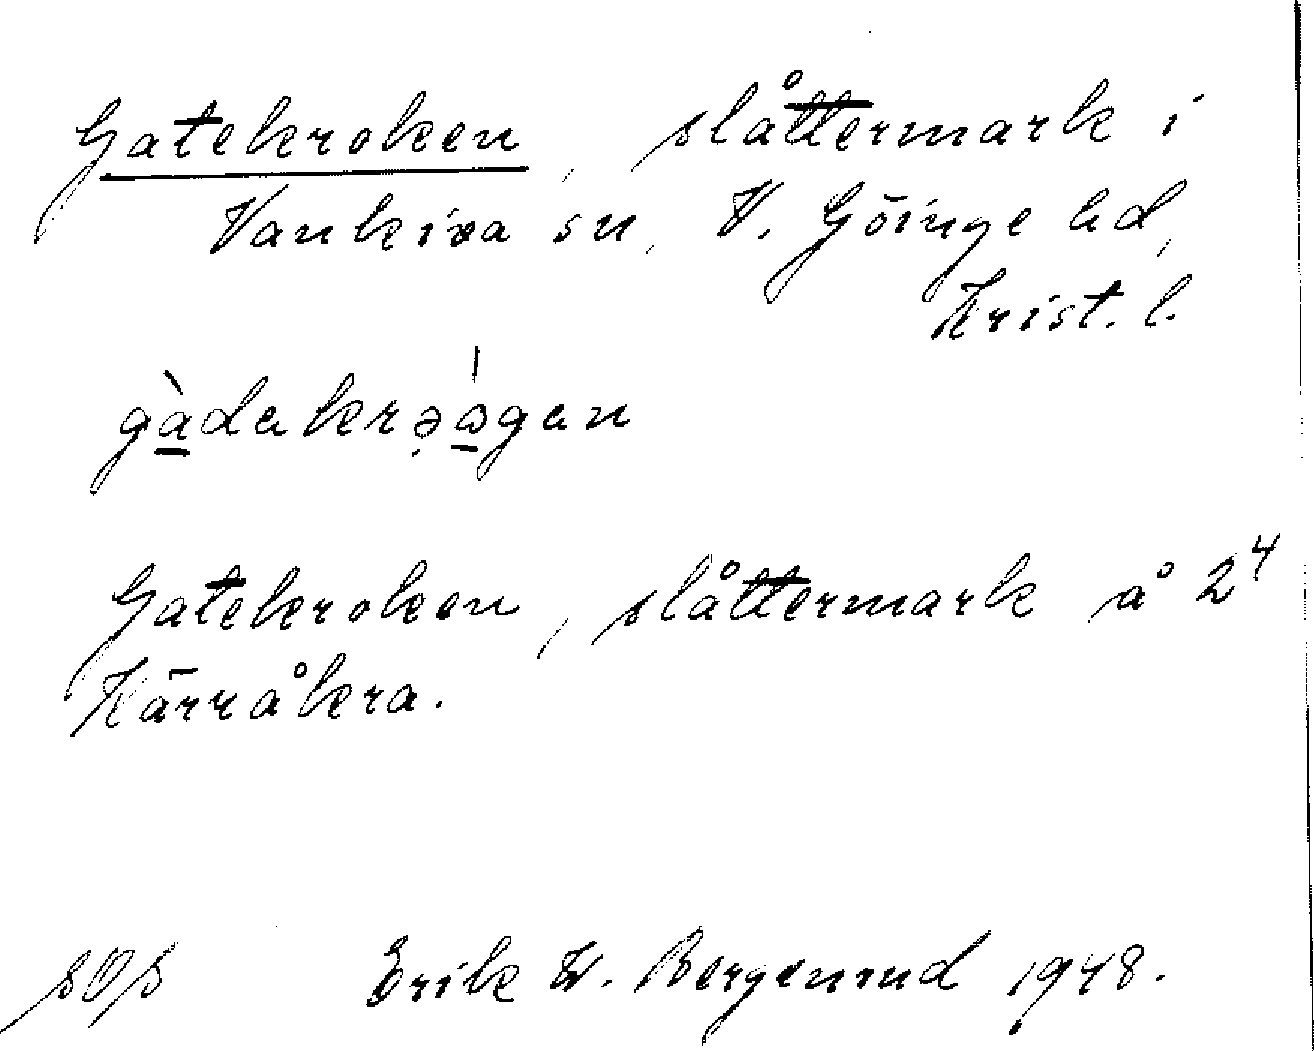 Gatekroken, slåttermark i
Vankiva sn, V. Göinge hd,
Krist. l.
Gatekroken, slåttermark å 2⁴
Kärråkra.
Erik W. Bergenrud 1948.